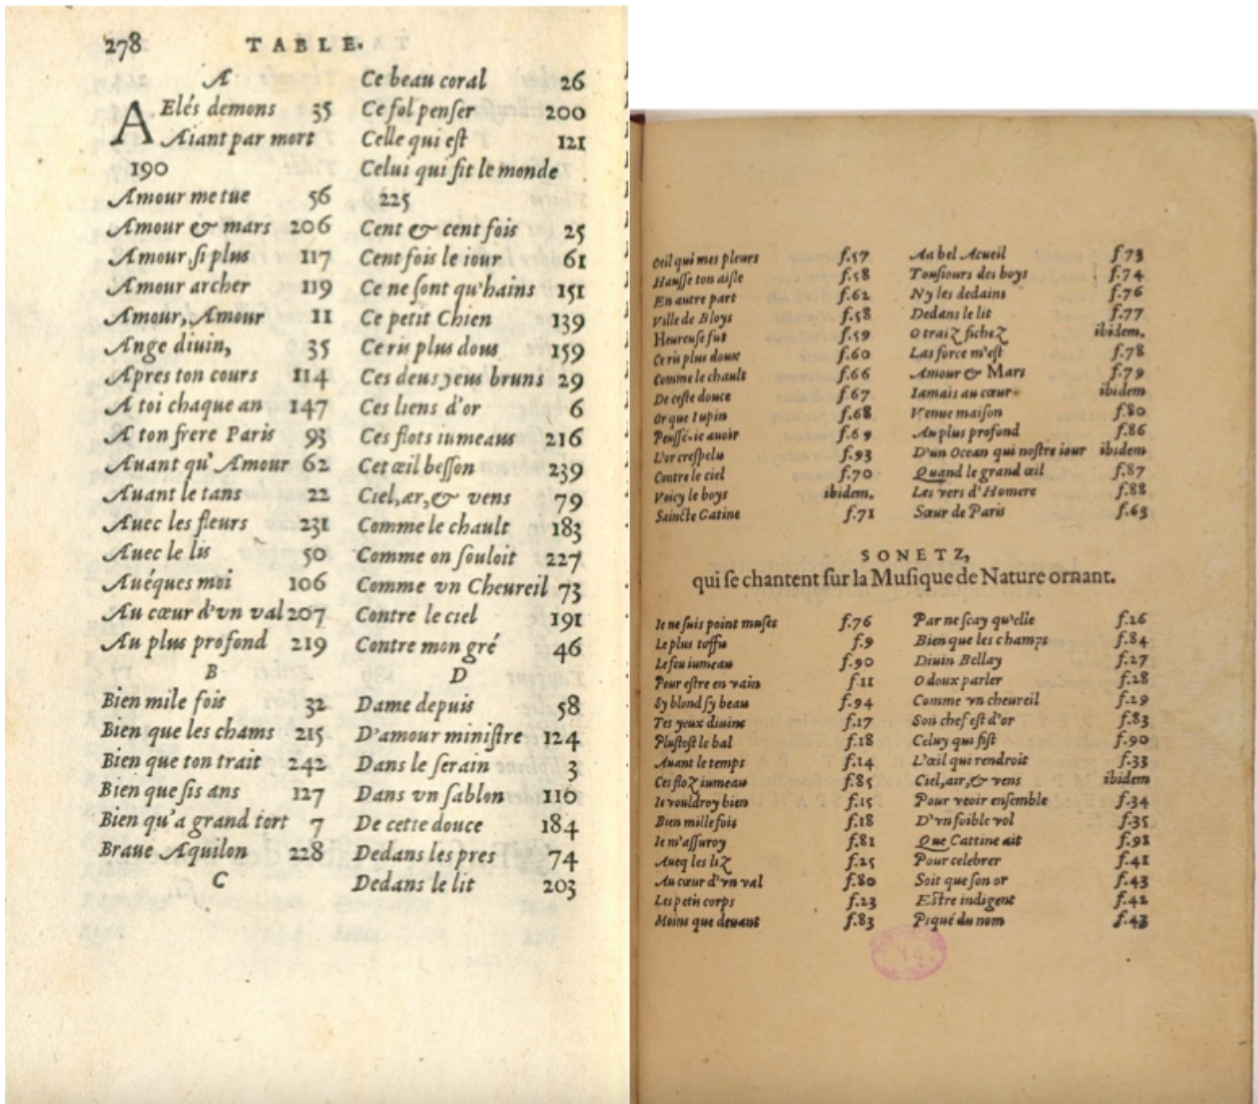 278 TABLE.
A
AElés demons 35
Aiant par mort
190
Amour me tue 56
Amour & mars 206
Amour, si plus 117
Amour archer 119
Amour, Amour 11
Ange diuin, 35
Apres ton cours 114
A toi chaque an 147
A ton frere Paris 93
Auant qu'Amour 62
Auant le tans 22
Auec les fleurs 231
Auec le lis 50
Auéques moi 106
Au cœur d'vn val 207
Au plus profond 219
B
Bien mile fois 32
Bien que les chams 215
Bien que ton trait 242
Bien que sis ans 127
Bien qu'a grand tort 7
Braue Aquilon 228
C
Ce beau coral 26
Ce fol penser 200
Celle qui est 121
Celui qui fit le monde
225
Cent & cent fois 25
Cent fois le iour 61
Ce ne sont qu'hains 151
Ce petit Chien 139
Ce ris plus dous 159
Ces deus yeus bruns 29
Ces liens d'or 6
Ces flots iumeaus 216
Cet œil besson 239
Ciel, ar, & vens 79
Comme le chault 183
Comme on souloit 227
Comme vn Cheureil 73
Contre le ciel 191
Contre mon gré 46
D
Dame depuis 58
D'amour ministre 124
Dans le serain 3
Dans vn sablon 110
De cette douce 184
Dedans les pres 74
Dedans le lit 203
Oeil qui mes pleurs f.57
Hausse ton aisle f.58
En autre part f.62
Ville de Bloys f.58
Heureuse fut f.59
Ce ris plus doux f.60
Comme le chault f.66
De ceste douce f.67
Or que Iupin f.68
Peussé-ie auoir f.69
L'or crespelu f.93
Contre le ciel f.70
Voicy le boys ibidem.
Saincte Gatine f.71
Aa bel Acueil f.73
Tousiours des boys f.74
Ny les dedains f.76
Dedans le lit f.77
O traiz fichez ibidem.
Las force m'est f.78
Amour & Mars f.79
Iamais au cœur ibidem
Venue maison f.80
Au plus profond f.86
D'un Ocean qui nostre iour ibidem
Quand le grand œil f.87
Les vers d'Homere f.88
Sœur de Paris f.63
SONETZ,
qui se chantent sur la Musique de Nature ornant.
Ie ne suis point muses f.76
Le plus toffu f.9
Le feu iumeau f.90
Pour estre en vain f.11
Sy blond sy beau f.94
Tes yeux diuins f.17
Plustost le bal f.18
Auant le temps f.14
Ces floz iumeau f.85
Ie vouldroy bien f.15
Bien mille fois f.18
Ie m'assuroy f.81
Aueq les liz f.25
Au cœur d'vn val f.80
Les petis corps f.23
Moins que deuant f.83
Par ne scay qu'elle f.26
Bien que les champs f.84
Diuin Bellay f.27
O doux parler f.28
Comme vn cheureil f.29
Son chef est d'or f.83
Celuy qui fist f.90
L'œil qui rendroit f.33
Ciel, air, & vens ibidem
Pour veoir ensemble f.34
D'vn foible vol f.35
Que Cattine ait f.91
Pour celebrer f.41
Soit que son or f.43
Estre indigent f.42
Piqué du nom f.43